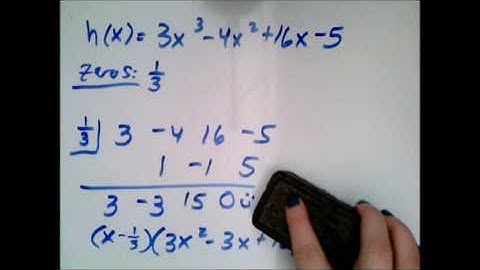 h(x) = 3x³ - 4x² + 16x - 5
Zeros: 1/3
1/3 | 3 -4 16 -5
1 -1 5
3 -3 15 0
(x - 1/3)(3x² - 3x + 1